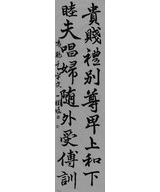 貴賤禮別尊卑上和下
睦夫唱婦随外受傅訓